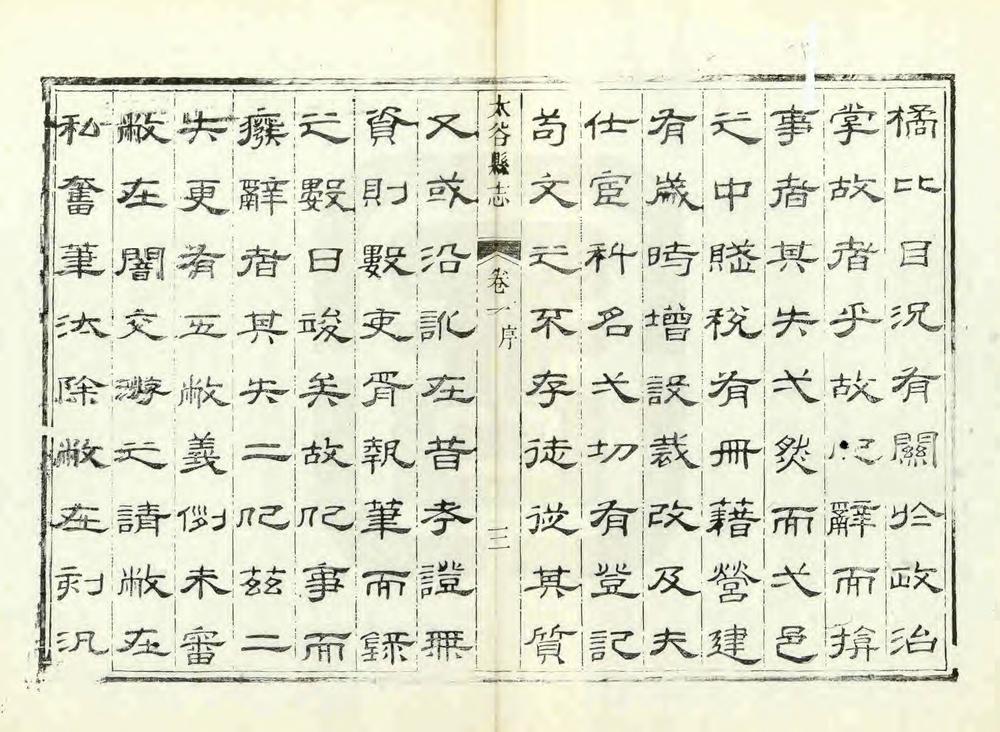 橘比目況有關於政治
掌故者乎故紀辭而揜
事者其失弌然而弌邑
之中賦稅有冊藉營建
有歲時增設裁改及夫
仕宦科名弌切有登記
苟文之不存徒從其質
太谷縣志 卷一 序 三
又或沿訛在昔考證無
資則數吏胥執筆而錄
之數日竣矣故紀事而
癈辭者其失二紀茲二
失更有五敝義例未審
敝在闇交游之請敝在
私奮筆汰除敝在刻汎